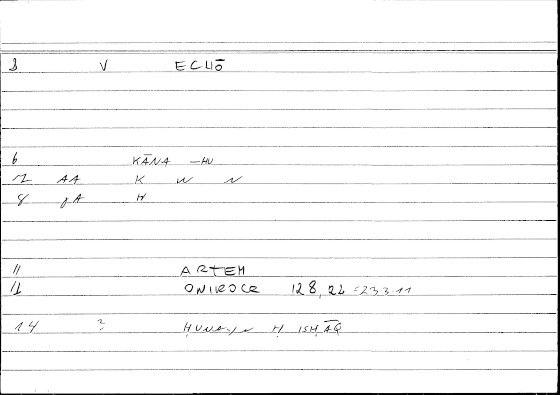 3 V ECHŌ
6 KĀNA -HU
7 AA K W N
8 fA H
11 ARTEM
12 ONIROCR 128,22 = 233.11
14 ? ḤUNAYN Ḥ ISḤĀQ